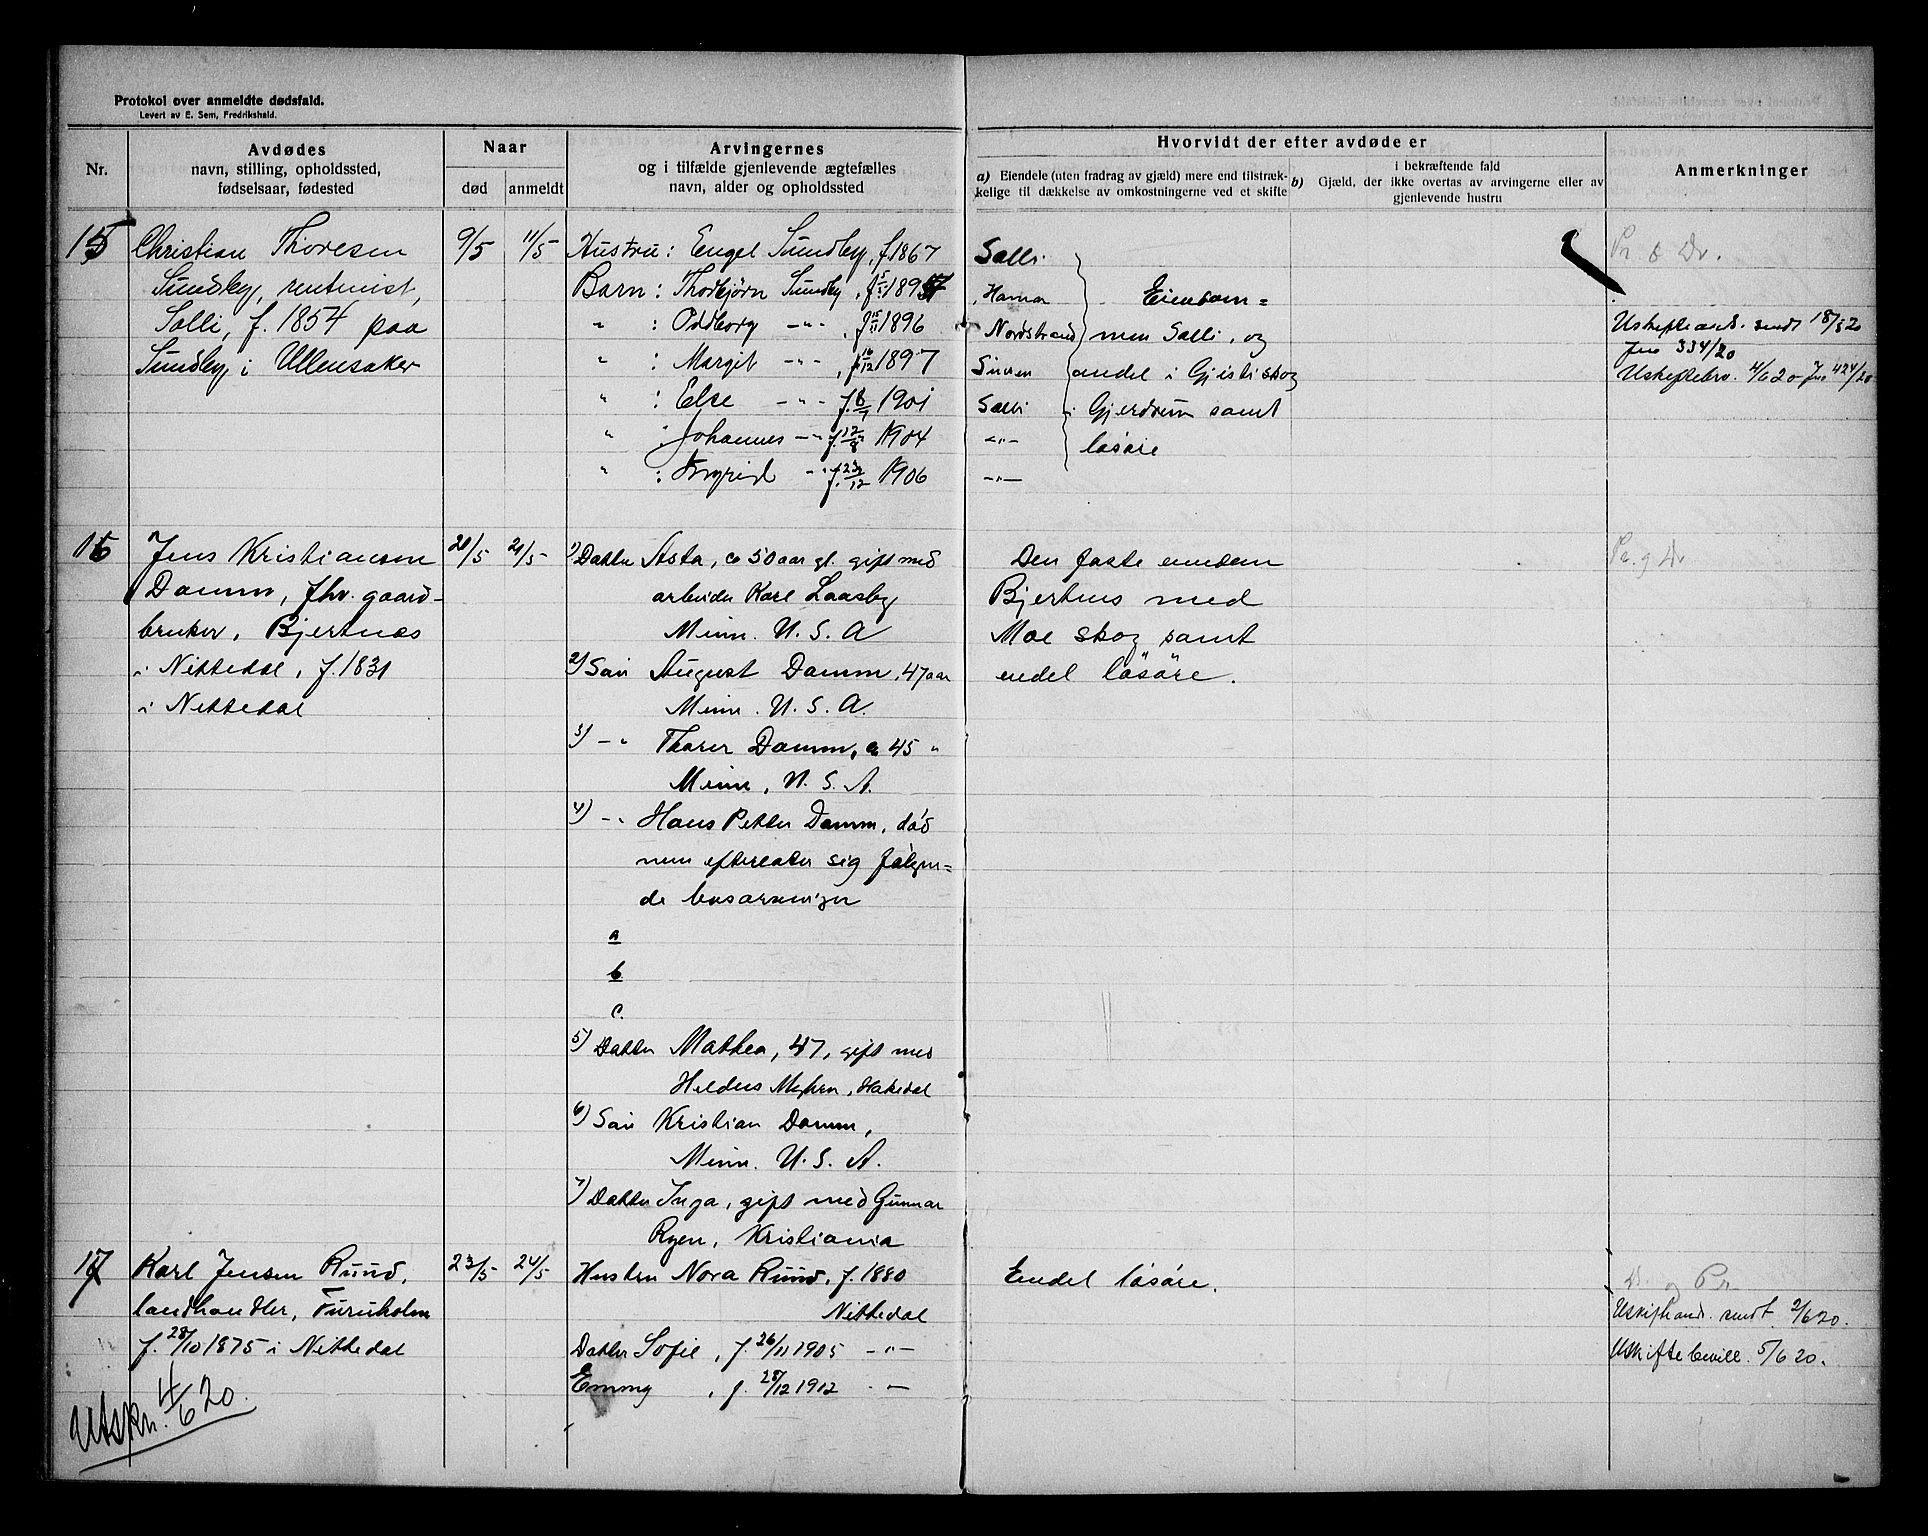 Protokol over anmeldte dødsfald.
Levert av E. Sem, Fredrikshald.
Nr.
Avdødes
navn, stilling, opholdssted,
fødselsaar, fødested
Naar
død
anmeldt
Arvingernes
og i tilfælde gjenlevende ægtefælles
navn, alder og opholdssted
Hvorvidt der efter avdøde er
a) Eiendele (uten fradrag av gjæld) mere end tilstræk-
kelige til dækkelse av omkostningerne ved et skifte
b) i bekræftende fald
Gjæld, der ikke overtas av arvingerne eller av
gjenlevende hustru
Anmerkninger
15
Christian Thoresen
Sundby, rentenist,
Salli, f. 1854 paa
Sundby i Ullensaker
9/5
11/5
Hustru: Engel Sundby, f 1867 Salli
Barn: Thorbjörn Sundby, f 5/5 1895 Hamar
" : Oddborg -"- , f 15/11 1896 Nordstrand
" : Margit -"- , f 16/12 1897 Sinsen
" : Else -"- f. 6/9 1901 Salli
" : Johannes -"- f. 12/8 1904 -"-
" : Ingrid -"- f. 23/12 1906 -"-
Eiendom=
men Salli, og
andel i Gjestiskog
i Gjerdrum samt
løsøre
Pr. & Dr.
Uskifteand. sendt 18/5 20
Jno 334/20
Uskiftebev. 4/6 20 Jno 424/20
16
Jens Kristiansen
Damm, fhv. gaard-
bruker, Bjertnæs
i Nittedal, f. 1831
i Nittedal
20/5
21/5
1) Datter Asta, ca 50 aar gl. gift med
arbeider Karl Laasby
Minn. U. S. A
2) Søn August Damm, 47 aar
Minn. U. S. A.
3) -" Thorer Damm, ca 45 "
Minn, U. S. A.
4) -" Hans Petter Damm, død
men efterlater sig følgen=
de livsarvinger
a
b
c.
5) Datter Mathea, 47, gift med
Heldens Myhren, Hakedal
6) Søn Kristian Damm,
Minn. U. S. A.
7) Datter Inga, gift med Gunnar
Ryen, Kristiania
Den faste eiendom
Bjertnes med
Moe skog samt
endel løsøre.
Pr. og Dr
17
Karl Jensen Ruud,
landhandler, Furuholm
f. 28/10 1875 i Nittedal
23/5
24/5
Hustru Nora Ruud, f. 1880
Nittedal
Datter Sofie, f. 26/11 1905 -"-
Emmy , f. 28/12 1912 -"-
Endel løsøre.
Dr. og Pr.
Uskifteand. sendt 2/6 20.
Uskiftebevill. 5/6 20.
Utskr. 4/6 20.